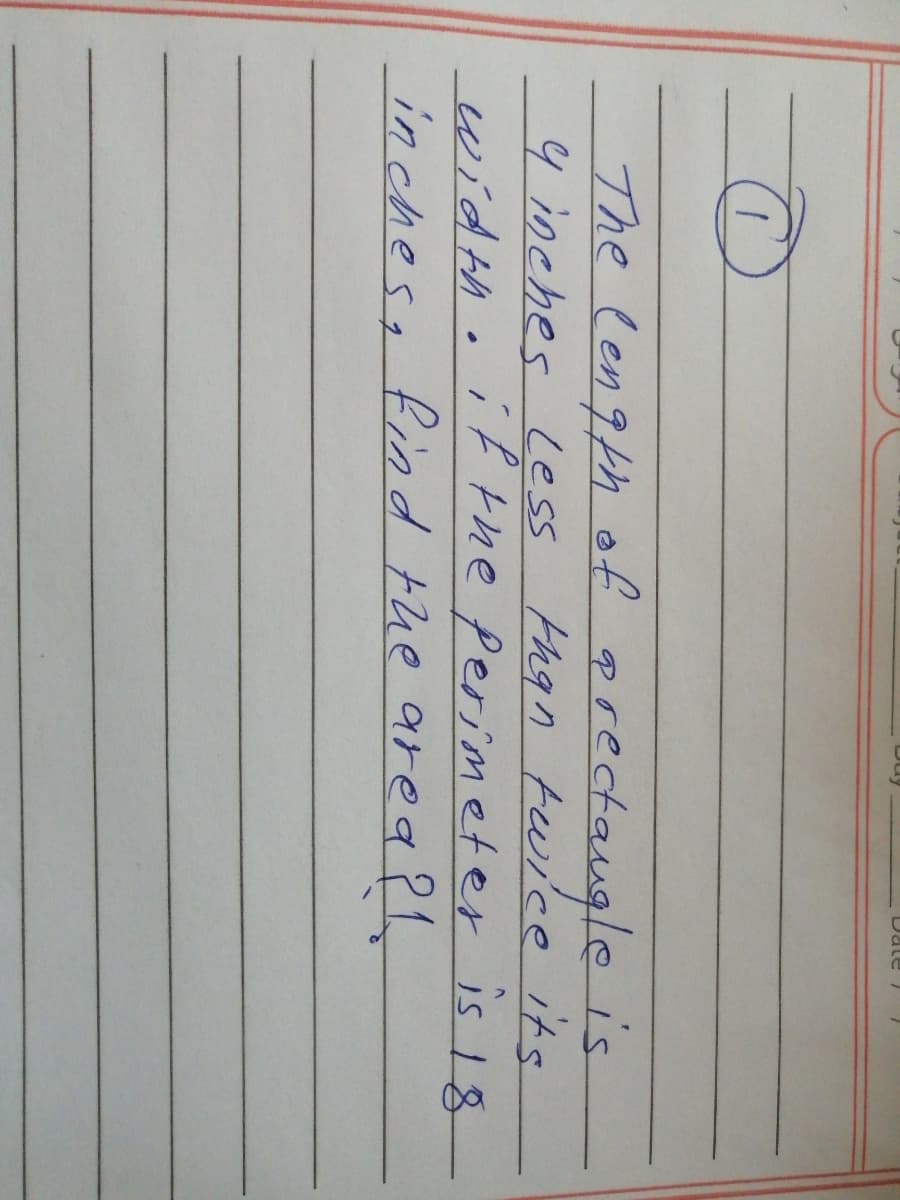 Day Date
①
The length of a rectangle is
4 inches less than twice its
width. if the perimeter is 18
inches, find the area?!